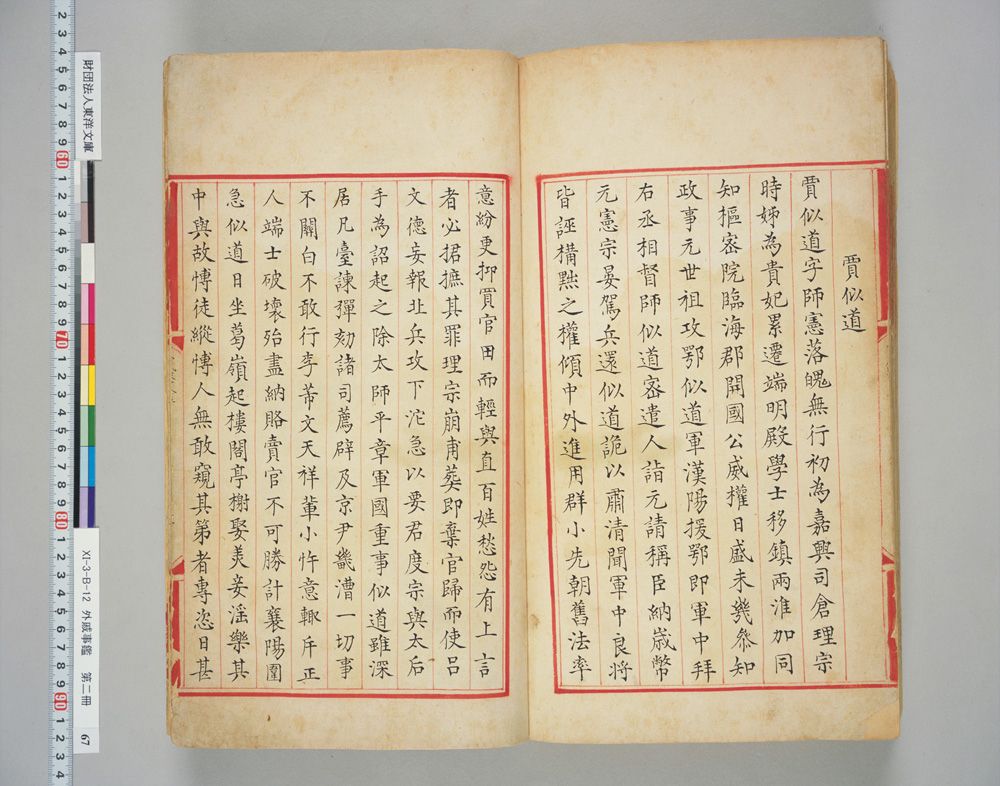 賈似道
賈似道字師憲落魄無行初為嘉興司倉理宗
時姊為貴妃累遷端明殿學士移鎮兩淮加同
知樞密院臨海郡開國公威權日盛未幾參知
政事元世祖攻鄂似道軍漢陽援鄂即軍中拜
右丞相督師似道密遣人詣元請稱臣納歲幣
元憲宗晏駕兵還似道詭以肅清聞軍中良將
皆誣構黜之權傾中外進用群小先朝舊法率
意紛更抑買官田而輕與直百姓愁怨有上言
者必捃摭其罪理宗崩甫葬即棄官歸而使呂
文德妄報北兵攻下沱急以要君度宗與太后
手為詔起之除太師平章軍國重事似道雖深
居凡臺諫彈劾諸司薦辟及京尹畿漕一切事
不關白不敢行李芾文天祥輩小忤意輒斥正
人端士破壞殆盡納賂賣官不可勝計襄陽圍
急似道日坐葛嶺起樓閣亭榭娶美妾淫樂其
中與故博徒縱博人無敢窺其第者專恣日甚
財団法人東洋文庫
XI-3-B-12 外戚事鑑 第二冊 67
2 3 4 5 6 7 8 9 60 1 2 3 4 5 6 7 8 9 70 1 2 3 4 5 6 7 8 9 80 1 2 3 4 5 6 7 8 9 90 1 2 3 4